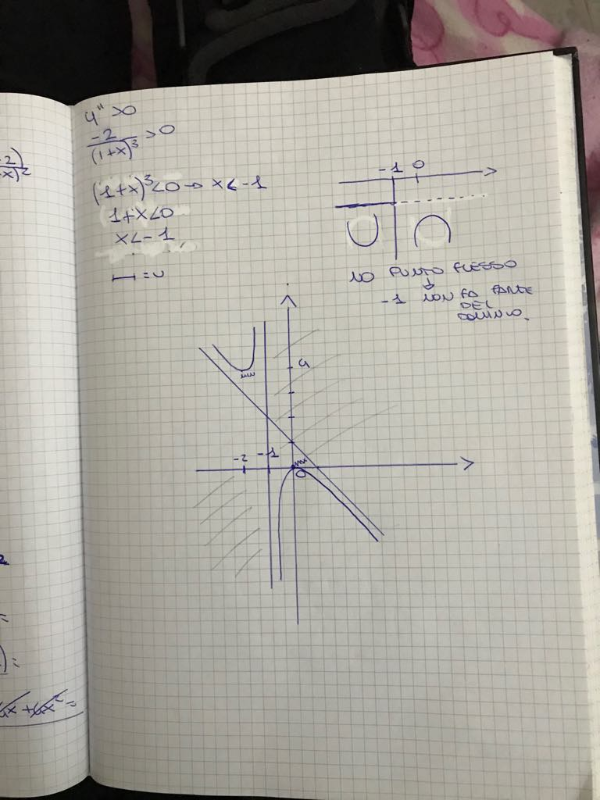 -2)
-x)²
y'' >0
-2/(1+x)³ >0
(1+x)³<0 → x<-1
1+x<0
x<-1
-1 0
NO PUNTO FLESSO
-1 NON FA PARTE
DEL
DOMINIO.
4
-2 -1
M
0
=
)=
+6x²=